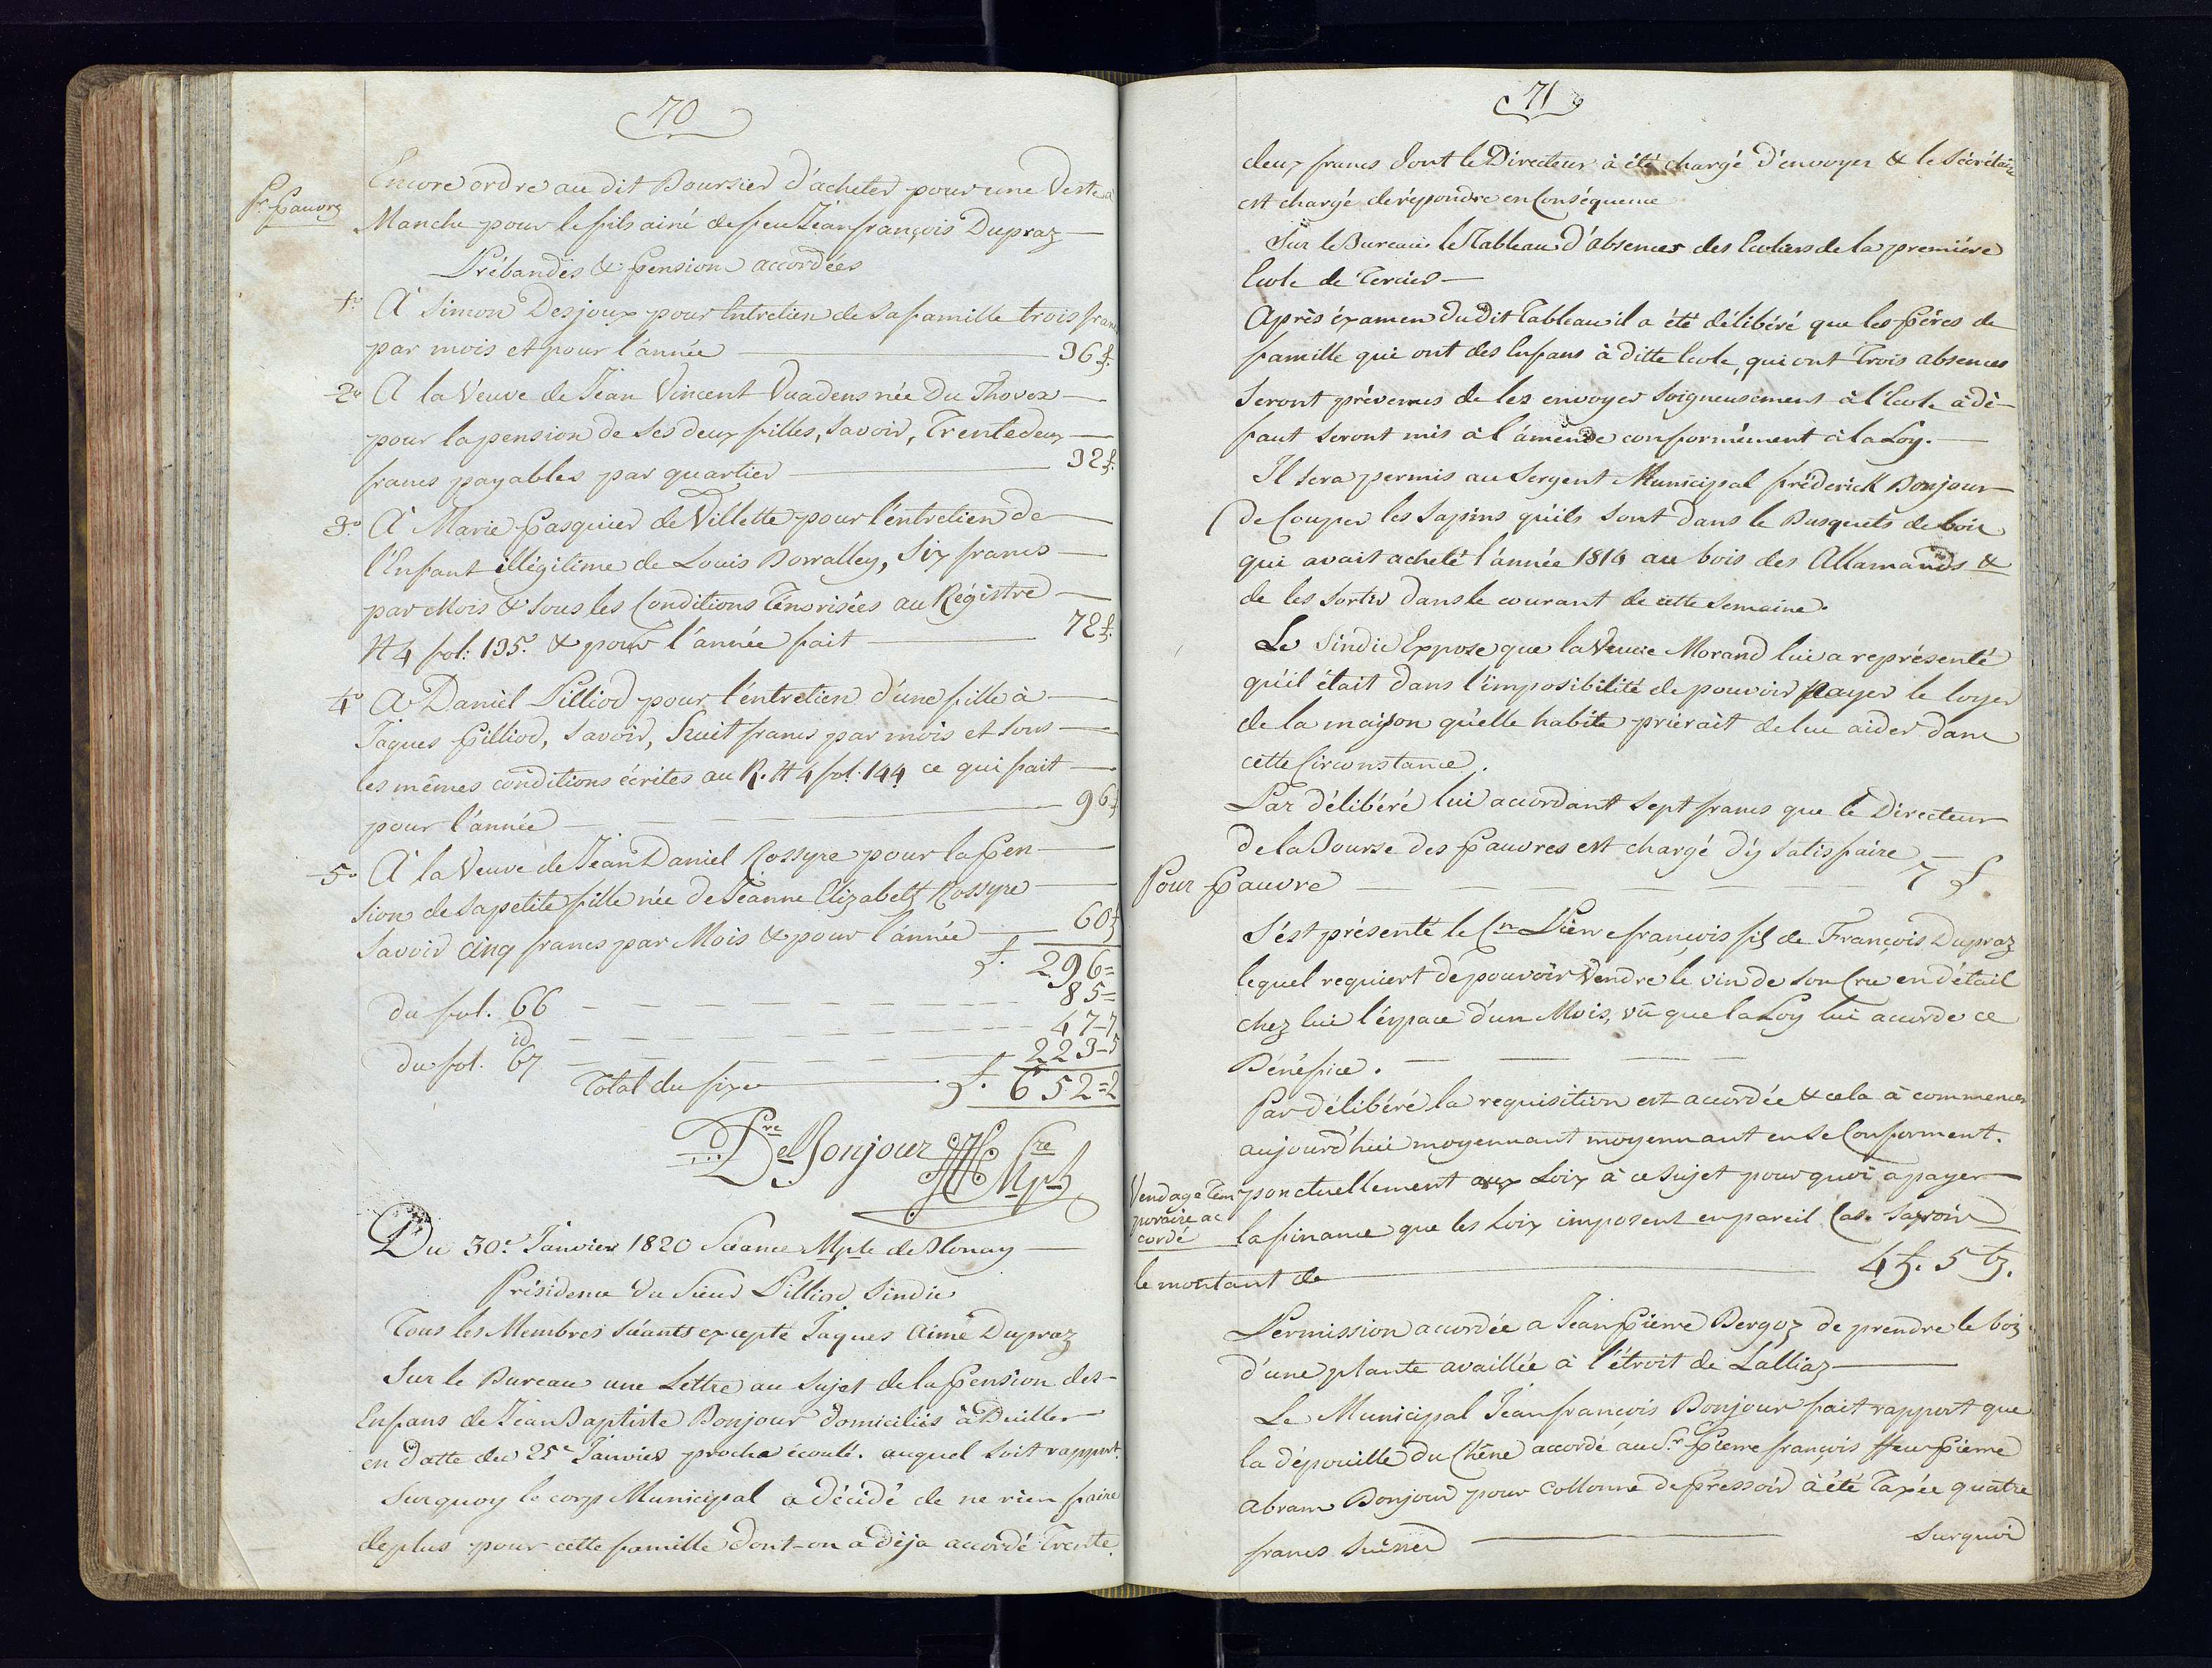 70
Encore ordre au dit Boursier d'acheter pour une Veste à
Pr. Pauvre
Manche pour le fils ainé de feu Jéan françois Dupraz
Prébandes & Pension accordées
1o A Simon Desjoux pour Entretien de sa famille trois francs
par mois et pour l'année 36 f.
2o A la Veuve de Jéan Vincent Vuadens née Du Thovex
pour la pension de ses deux filles, Savoir, Trente deux
francs payables par quartier 32 f.
3o A Marie Pasquier de Villette pour l'entretien de
l'Enfant illégitime de Louis Borralley, Six francs
par Mois & sous les Conditions Ténorisées au Régistre
N 4 fol: 135. & pour l'année fait 72 f.
4o A Daniel Pilliod pour l'éntretien d'une fille à
Jaques Pilliod, Savoir, huit francs par mois et sous
les mêmes conditions écrites au R. N 4 fol. 144 ce qui fait
pour l'année 96 f
5o A la Veuve de Jéan Daniel Rossyre pour la Pen-
sion de sa petite fille née de Jéanne Elizabeth Rossyre
Savoir cinq francs par Mois & pour l'année 60 f
f. 296=
du fol. 66 85=
id 47-7
du fol. 67 223-5
Total du fixe f. 652=2
Del Bonjour Sre Mple
Du 30e. Janvier 1820 Séance Mple de Blonay
Présidence du Sieur Pilliod Sindic
Tous les Membres séants excepté Jaques Aimé Dupraz
Sur le Bureau une Lettre au Sujet de la Pension des
Enfans de Jéan Baptiste Bonjour domiciliés à Deuiller
en datte du 25e Janvier proche écoulé. auquel soit rapport.
Surquoy le corps Municipal a décidé de ne rien faire
de plus pour cette famille dont on a déja accordé Trente
71
deux francs dont le Directeur à été chargé d'envoyer & le Sécrétaire
est chargé de répondre en Conséquence
Sur le Bureau le Tableau d'absences des Ecoliers de la premiére
Ecole de Tercier
Après éxamen du dit Tableau il a été délibéré que les Péres de
famille qui ont des Enfans à ditte Ecole, qui ont Trois absences
Seront prévenus de les envoyer soigneusement à l'Ecole à dé-
faut seront mis à l'amende conformément à la Loy.
Il sera permis au Sergent Municipal fréderick Bonjour
de Couper les Sapins qu'ils sont dans le Busquets de bois
qui avait acheté l'année 1816 au bois des Allamands &
de les sortir dans le courant de cette semaine.
Le Sindic Expose que la Veuve Morand lui a représenté
qu'il était dans l'imposibilité de pouvoir payer le loyer
de la maison qu'elle habite prierait de lui aider dans
cette Circonstance.
Par délibéré lui accordant sept francs que le Directeur
de la Bourse des Pauvres est chargé d'y satisfaire
Pour Pauvre 7 f
S'ést présenté le Cn Pierre françois fils de François Dupraz
lequel requiert de pouvoir Vendre le vin de son Cru en détail
chez lui l'éspace d'un Mois, vû que la Loy lui accorde ce
Bénéfice.
Par délibéré la requisition est accordée & cela à commencer
aujourd'hui moyennant moyennant en se Conformant.
Vendage Tem ponctuellement aux Loix à ce sujet pourquoi a payer
poraire ac
cordé la finance que les Loix imposent en pareil Cas. Savoir
le montant de 4 f. 5 bz.
Permission accordée a Jéan Pierre Bergoz de prendre le bois
d'une plante availlée à l'étroit de Lalliaz
Le Municipal Jéan françois Bonjour fait rapport que
la dépouille du Chêne accordé au Sr. Pierre françois ffeu Pierre
Abram Bonjour pour Collonne de Pressoir à été Taxée quatre
francs Suisses
Surquoi